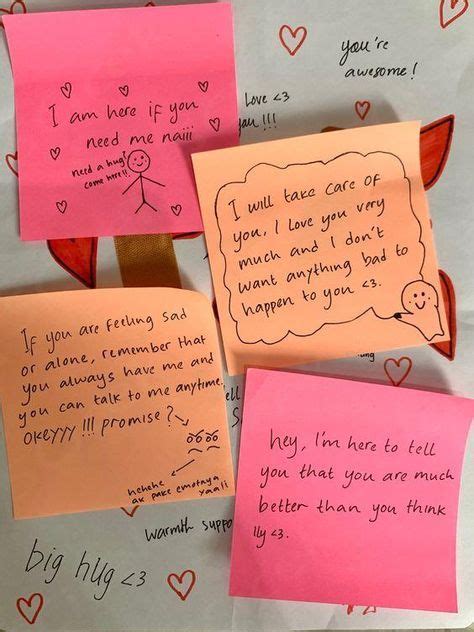 you're
awesome!
I am here if you
need me naiii
need a hug?
come here!!
Love <3
you!!!
I will take care of
you, I love you very
much and I don't
want anything bad to
happen to you <3.
If you are feeling sad
or alone, remember that
you always have me and
you can talk to me anytime.
OKEYYY !!! promise?
hehehe
ak pake emotaya
xaali
hey, I'm here to tell
you that you are much
better than you think
lly <3.
warmth suppo
big hug <3